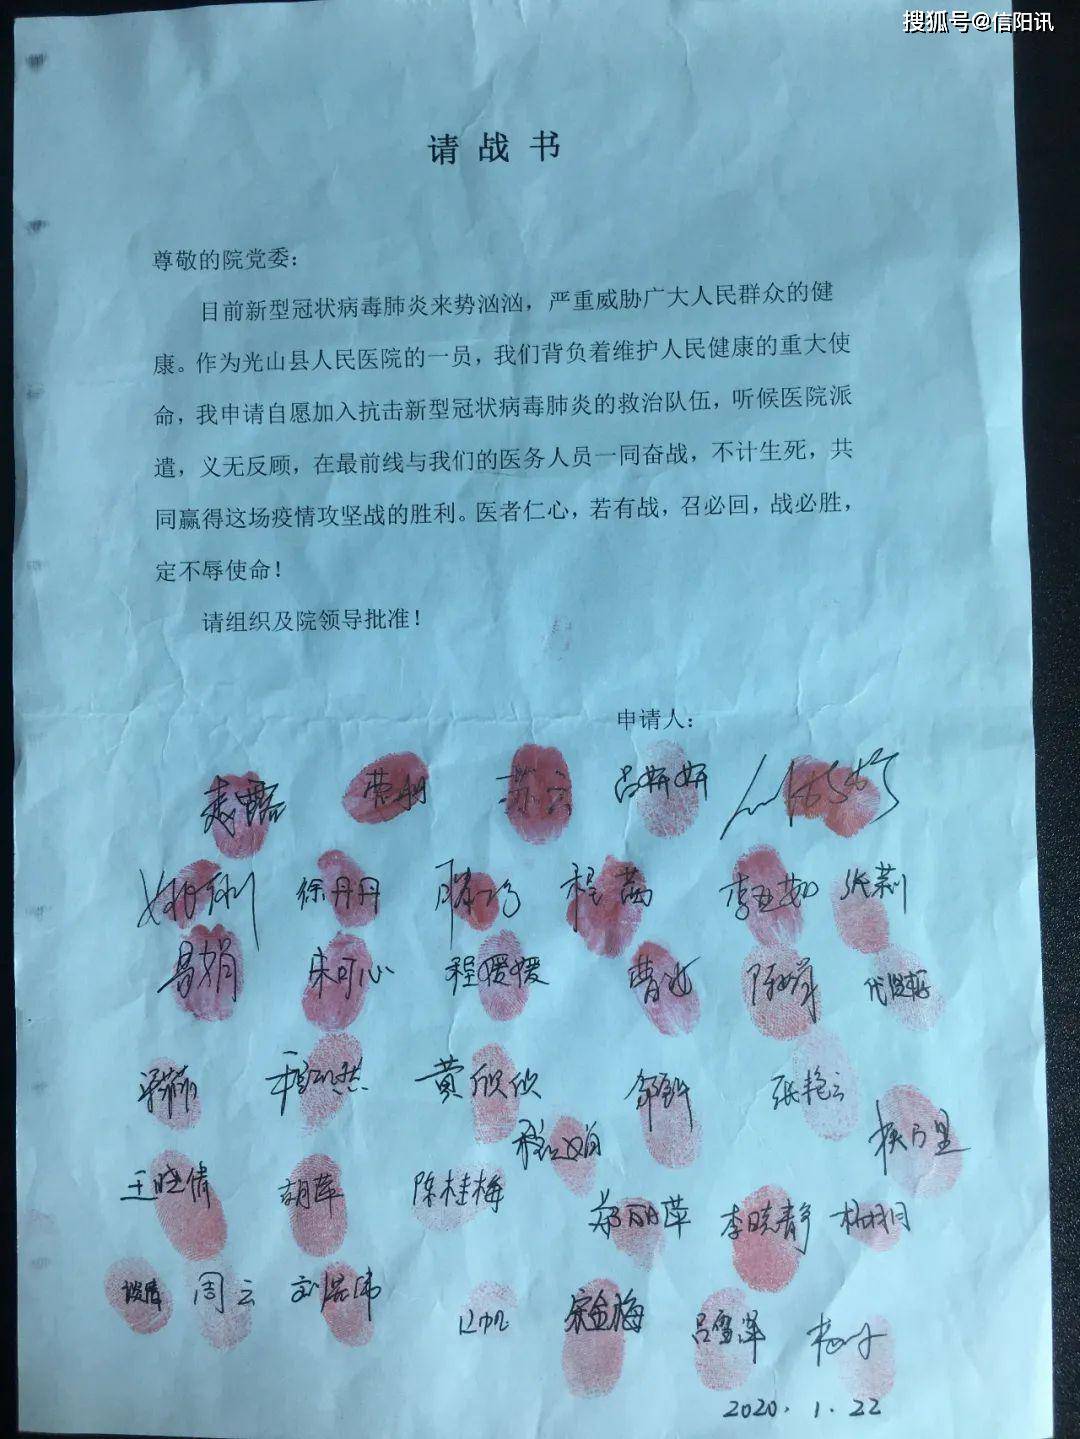 搜狐号@信阳讯
请战书
尊敬的院党委：
目前新型冠状病毒肺炎来势汹汹，严重威胁广大人民群众的健
康。作为光山县人民医院的一员，我们背负着维护人民健康的重大使
命，我申请自愿加入抗击新型冠状病毒肺炎的救治队伍，听候医院派
遣，义无反顾，在最前线与我们的医务人员一同奋战，不计生死，共
同赢得这场疫情攻坚战的胜利。医者仁心，若有战，召必回，战必胜，
定不辱使命！
请组织及院领导批准！
申请人：
苏云 吕妍妍
徐丹丹 程茜 张莉
昌娟 宋可心 程媛媛
黄欣欣 张艳云
王晓倩 胡萍 陈桂梅
郑丽萍 李晓静
周云
宋金梅
2020.1.22